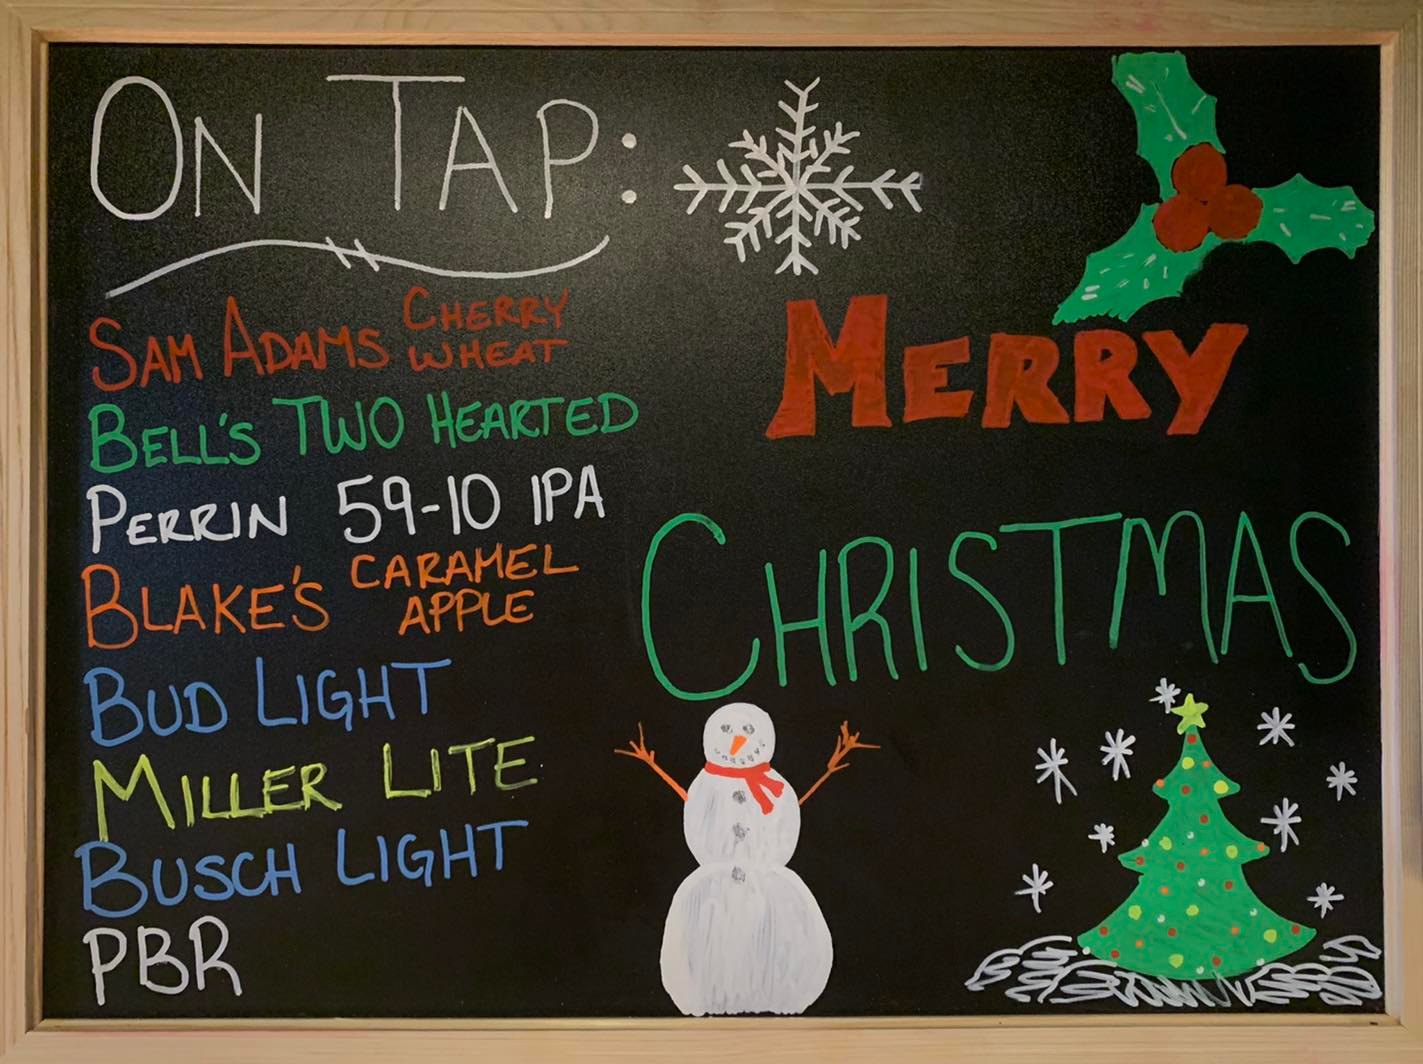 ON TAP:
SAM ADAMS CHERRY WHEAT
BELL'S TWO HEARTED
PERRIN 59-10 IPA
BLAKE'S CARAMEL APPLE
BUD LIGHT
MILLER LITE
BUSCH LIGHT
PBR
MERRY
CHRISTMAS